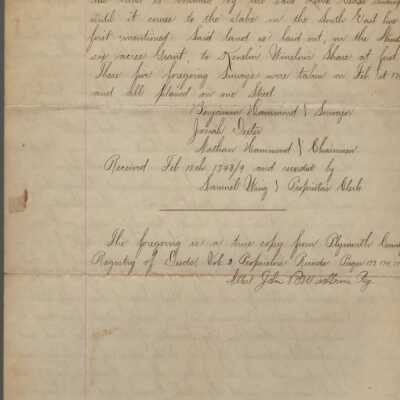 until it comes to the stake in the South East
first mentioned. Said land is laid out, in the
six acre Grant, to Kenelm Winslow Share at first
These five foregoing Surveys were taken in Feb
and all placed in one sheet
Benjamin Hammond } Surveyor
Josiah Dexter
Nathan Hammond } Chainmen
Received Feb 13th 1748/9 and recorded by
Samuel Wing } Proprietors Clerk
The foregoing is a true copy from Plymouth
Registry of Deeds, Vol. 2 Proprietors Records Pages
Attest John B Reg.